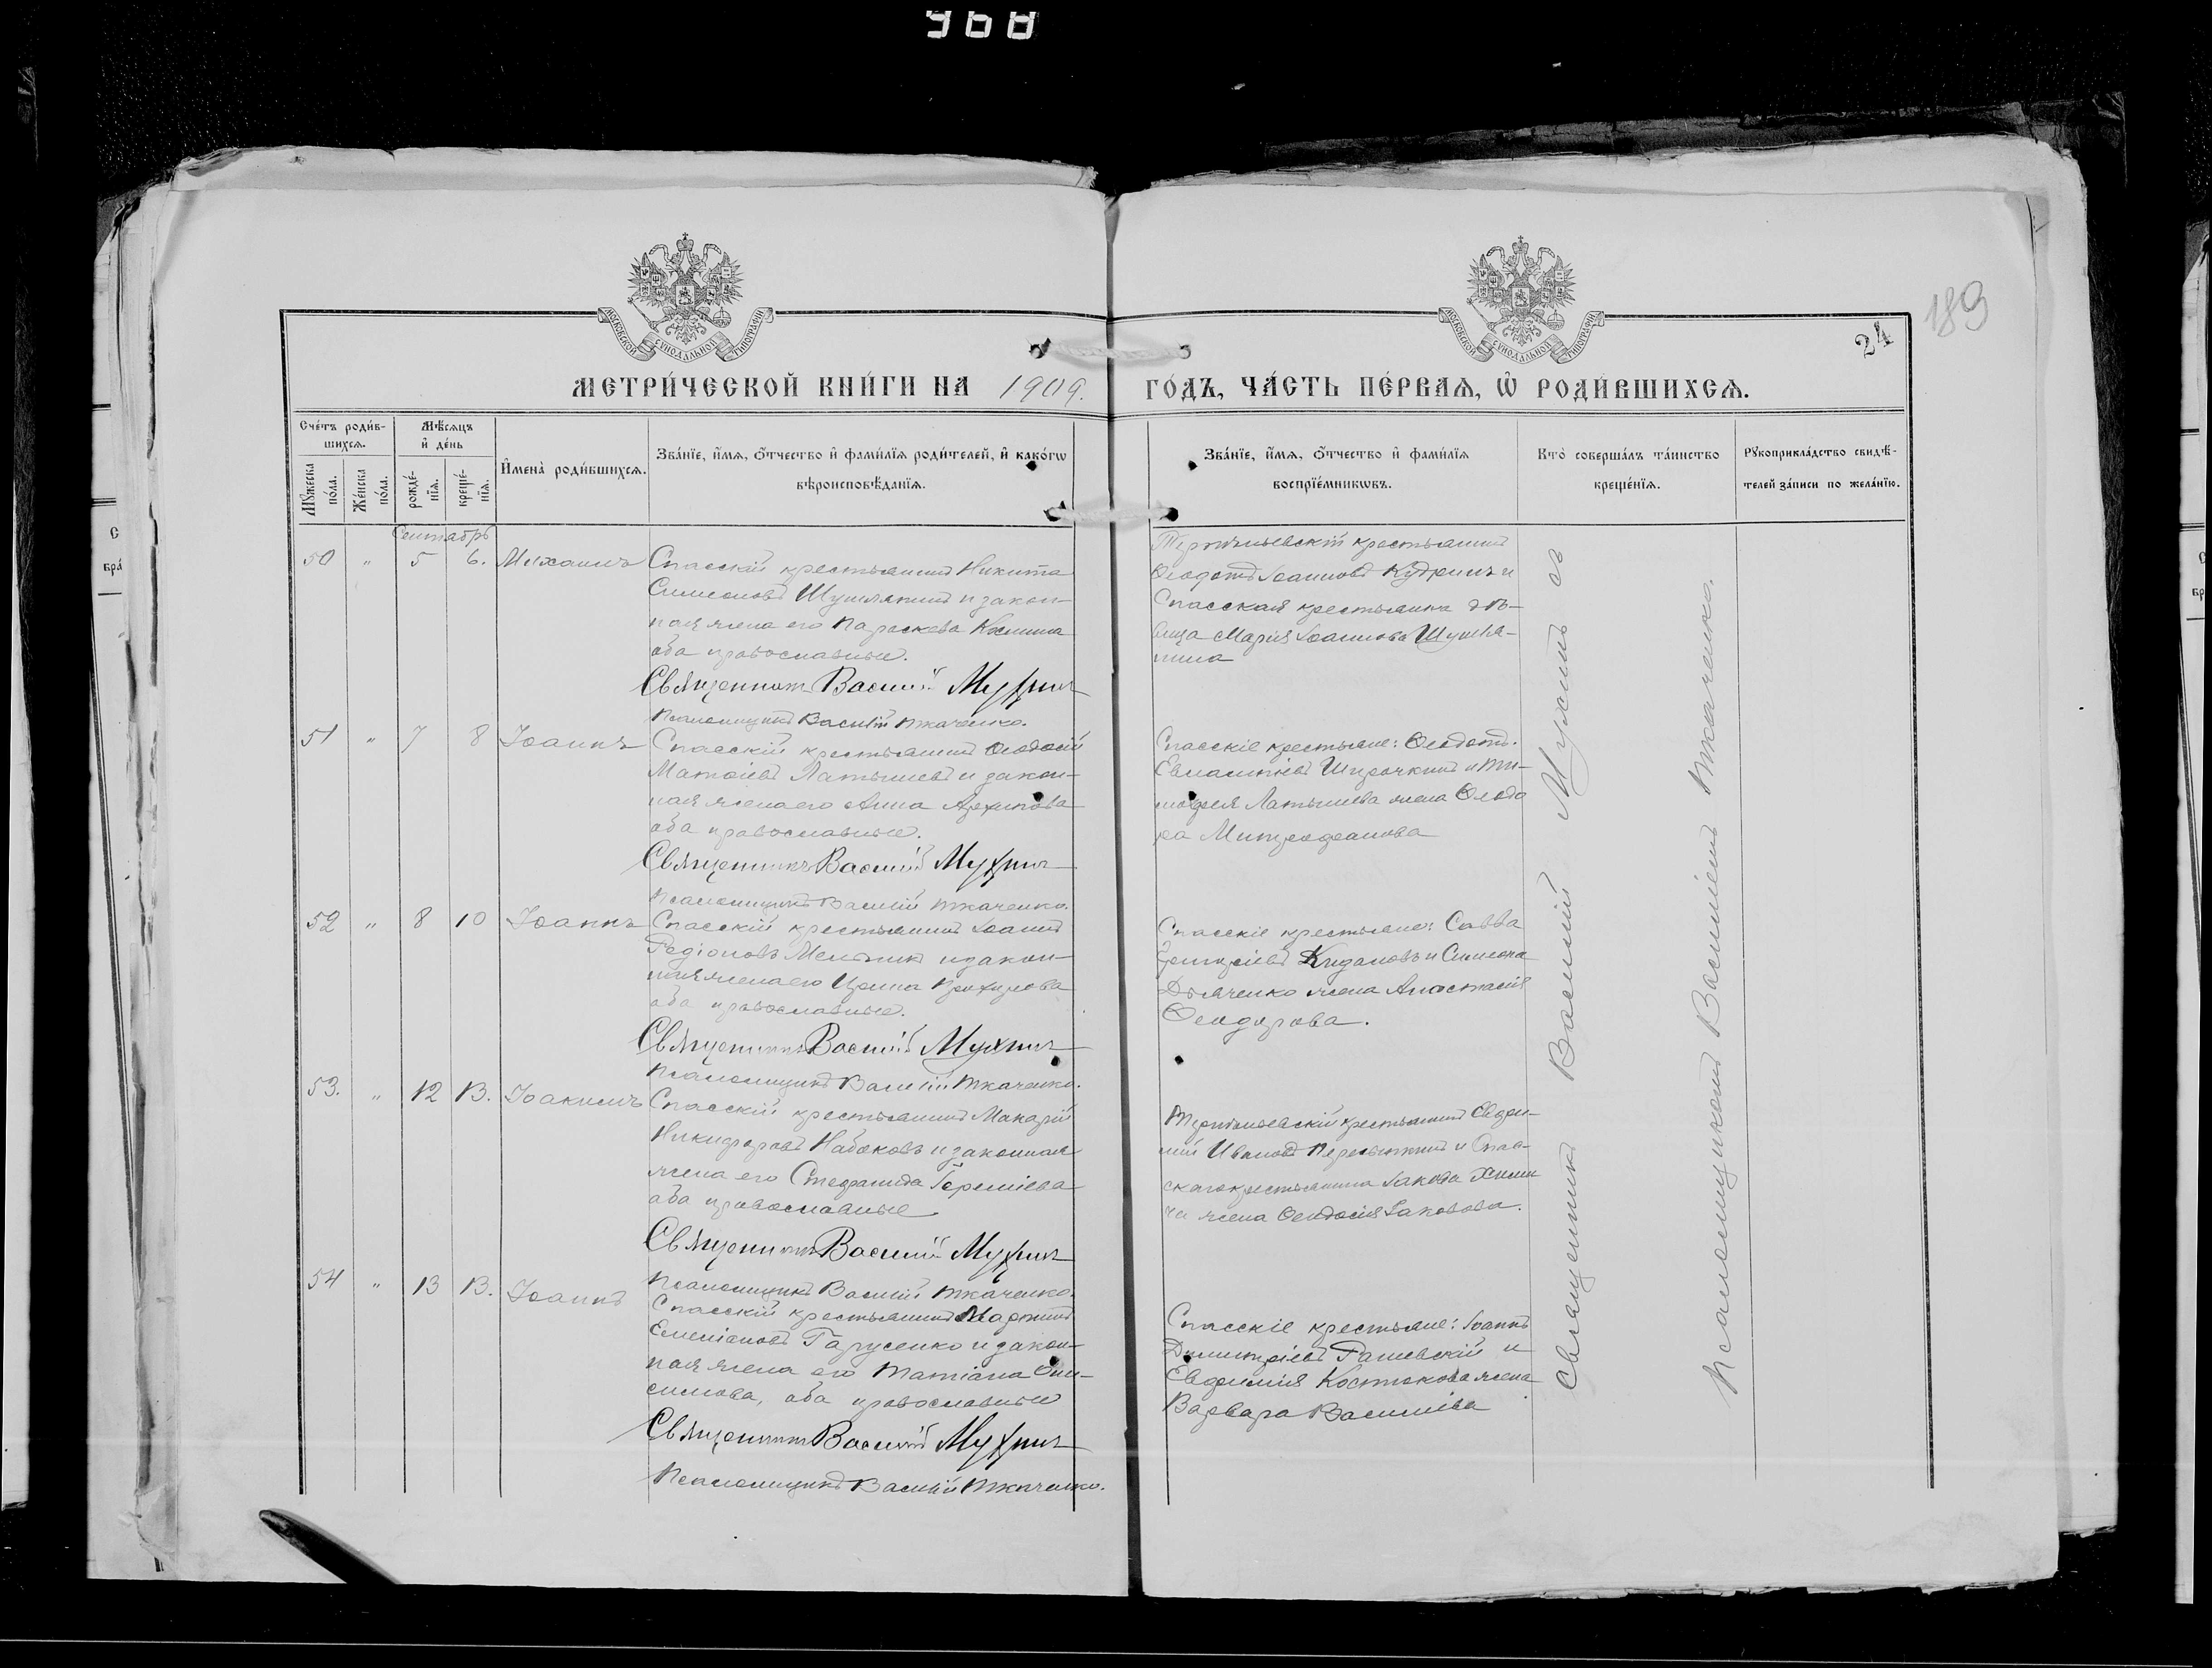 968
189
24
МОСКОВСКОЙ СѴНОДАЛЬНОЙ ТИПОГРАФІИ
МОСКОВСКОЙ СѴНОДАЛЬНОЙ ТИПОГРАФІИ
МЕТРИ́ЧЕСКОЙ КНИ́ГИ НА 1909.
ГО́ДЪ, ЧА́СТЬ ПЕ́РВАЯ, Ѡ҆ РОДИ́ВШИХСѦ.
Сче́тъ роди́в-
шихсѧ.
Мꙋ́жеска по́ла.
Же́нска по́ла.
Мѣ́сѧцъ
и҆ де́нь
рожде́-
нїѧ.
креще́-
нїѧ.
И҆мена̀ роди́вшихсѧ.
Зва́нїе, и҆́мѧ, ѻ҆́тчество и҆ фами́лїѧ роди́телей, и҆ како́гѡ
вѣроисповѣ́данїѧ.
Зва́нїе, и҆́мѧ, ѻ҆́тчество и҆ фами́лїѧ
воспрїе́мникѡвъ.
Кто̀ соверша́лъ та́инство
креще́нїѧ.
Рꙋкоприкла́дство свидѣ́-
телей за́писи по жела́нїю.
Сентябрь
50 " 5 6. Михаилъ
Спасскій крестьянинъ Никита
Симеоновъ Шушляпинъ и закон-
ная жена его Параскева Космина
оба православные.
Священникъ Василій Мухинъ
Псаломщикъ Василій Ткаченко.
крестьянинъ
Ѳеодотъ Іоанновъ Кудринъ и
Спасская крестьянка дѣ-
вица Марія Іоаннова Шушля-
пина
51 " 7 8 Іоаннъ
Спасскій крестьянинъ Ѳеодосій
Матѳіевъ Латышевъ и закон-
ная жена его Анна Архипова
оба православные.
Священникъ Василій Мухинъ
Псаломщикъ Василій Ткаченко.
Спасскіе крестьяне: Ѳеодотъ
Евлампіевъ Широчкинъ и Ти-
моѳея Латышева жена Ѳеодо
ра Митрофанова
52 " 8 10 Іоаннъ
Спасскій крестьянинъ Іоаннъ
Родіоновъ Мельникъ и закон-
ная жена его Ирина Прохорова
оба православные.
Священникъ Василій Мухинъ
Псаломщикъ Василій Ткаченко.
Спасскіе крестьяне: Савва
Димитріевъ и Симеона
Дьяченко жена Анастасія
Ѳеодорова.
53. " 12 13. Іоакимъ
Спасскій крестьянинъ Макарій
Никифоровъ Набоковъ и законная
жена его Стефанида Іереміева
оба православные
Священникъ Василій Мухинъ
Псаломщикъ Василій Ткаченко.
крестьянинъ Евфи-
мій Ивановъ и Спас-
скаго крестьянина Іакова
жена Ѳеодосія Іаковова.
54 " 13 13. Іоаннъ
Спасскій крестьянинъ Мартинъ
Емеліановъ Гарусенко и закон-
ная жена его Татіана Они-
симова, оба православные
Священникъ Василій Мухинъ
Псаломщикъ Василій Ткаченко.
Спасскіе крестьяне: Іоаннъ
Димитріевъ Рашевскій и
Евфимія Костюкова жена
Варвара Василіева
Священникъ Василій Мухинъ съ
Псаломщикомъ Василіемъ Ткаченко.